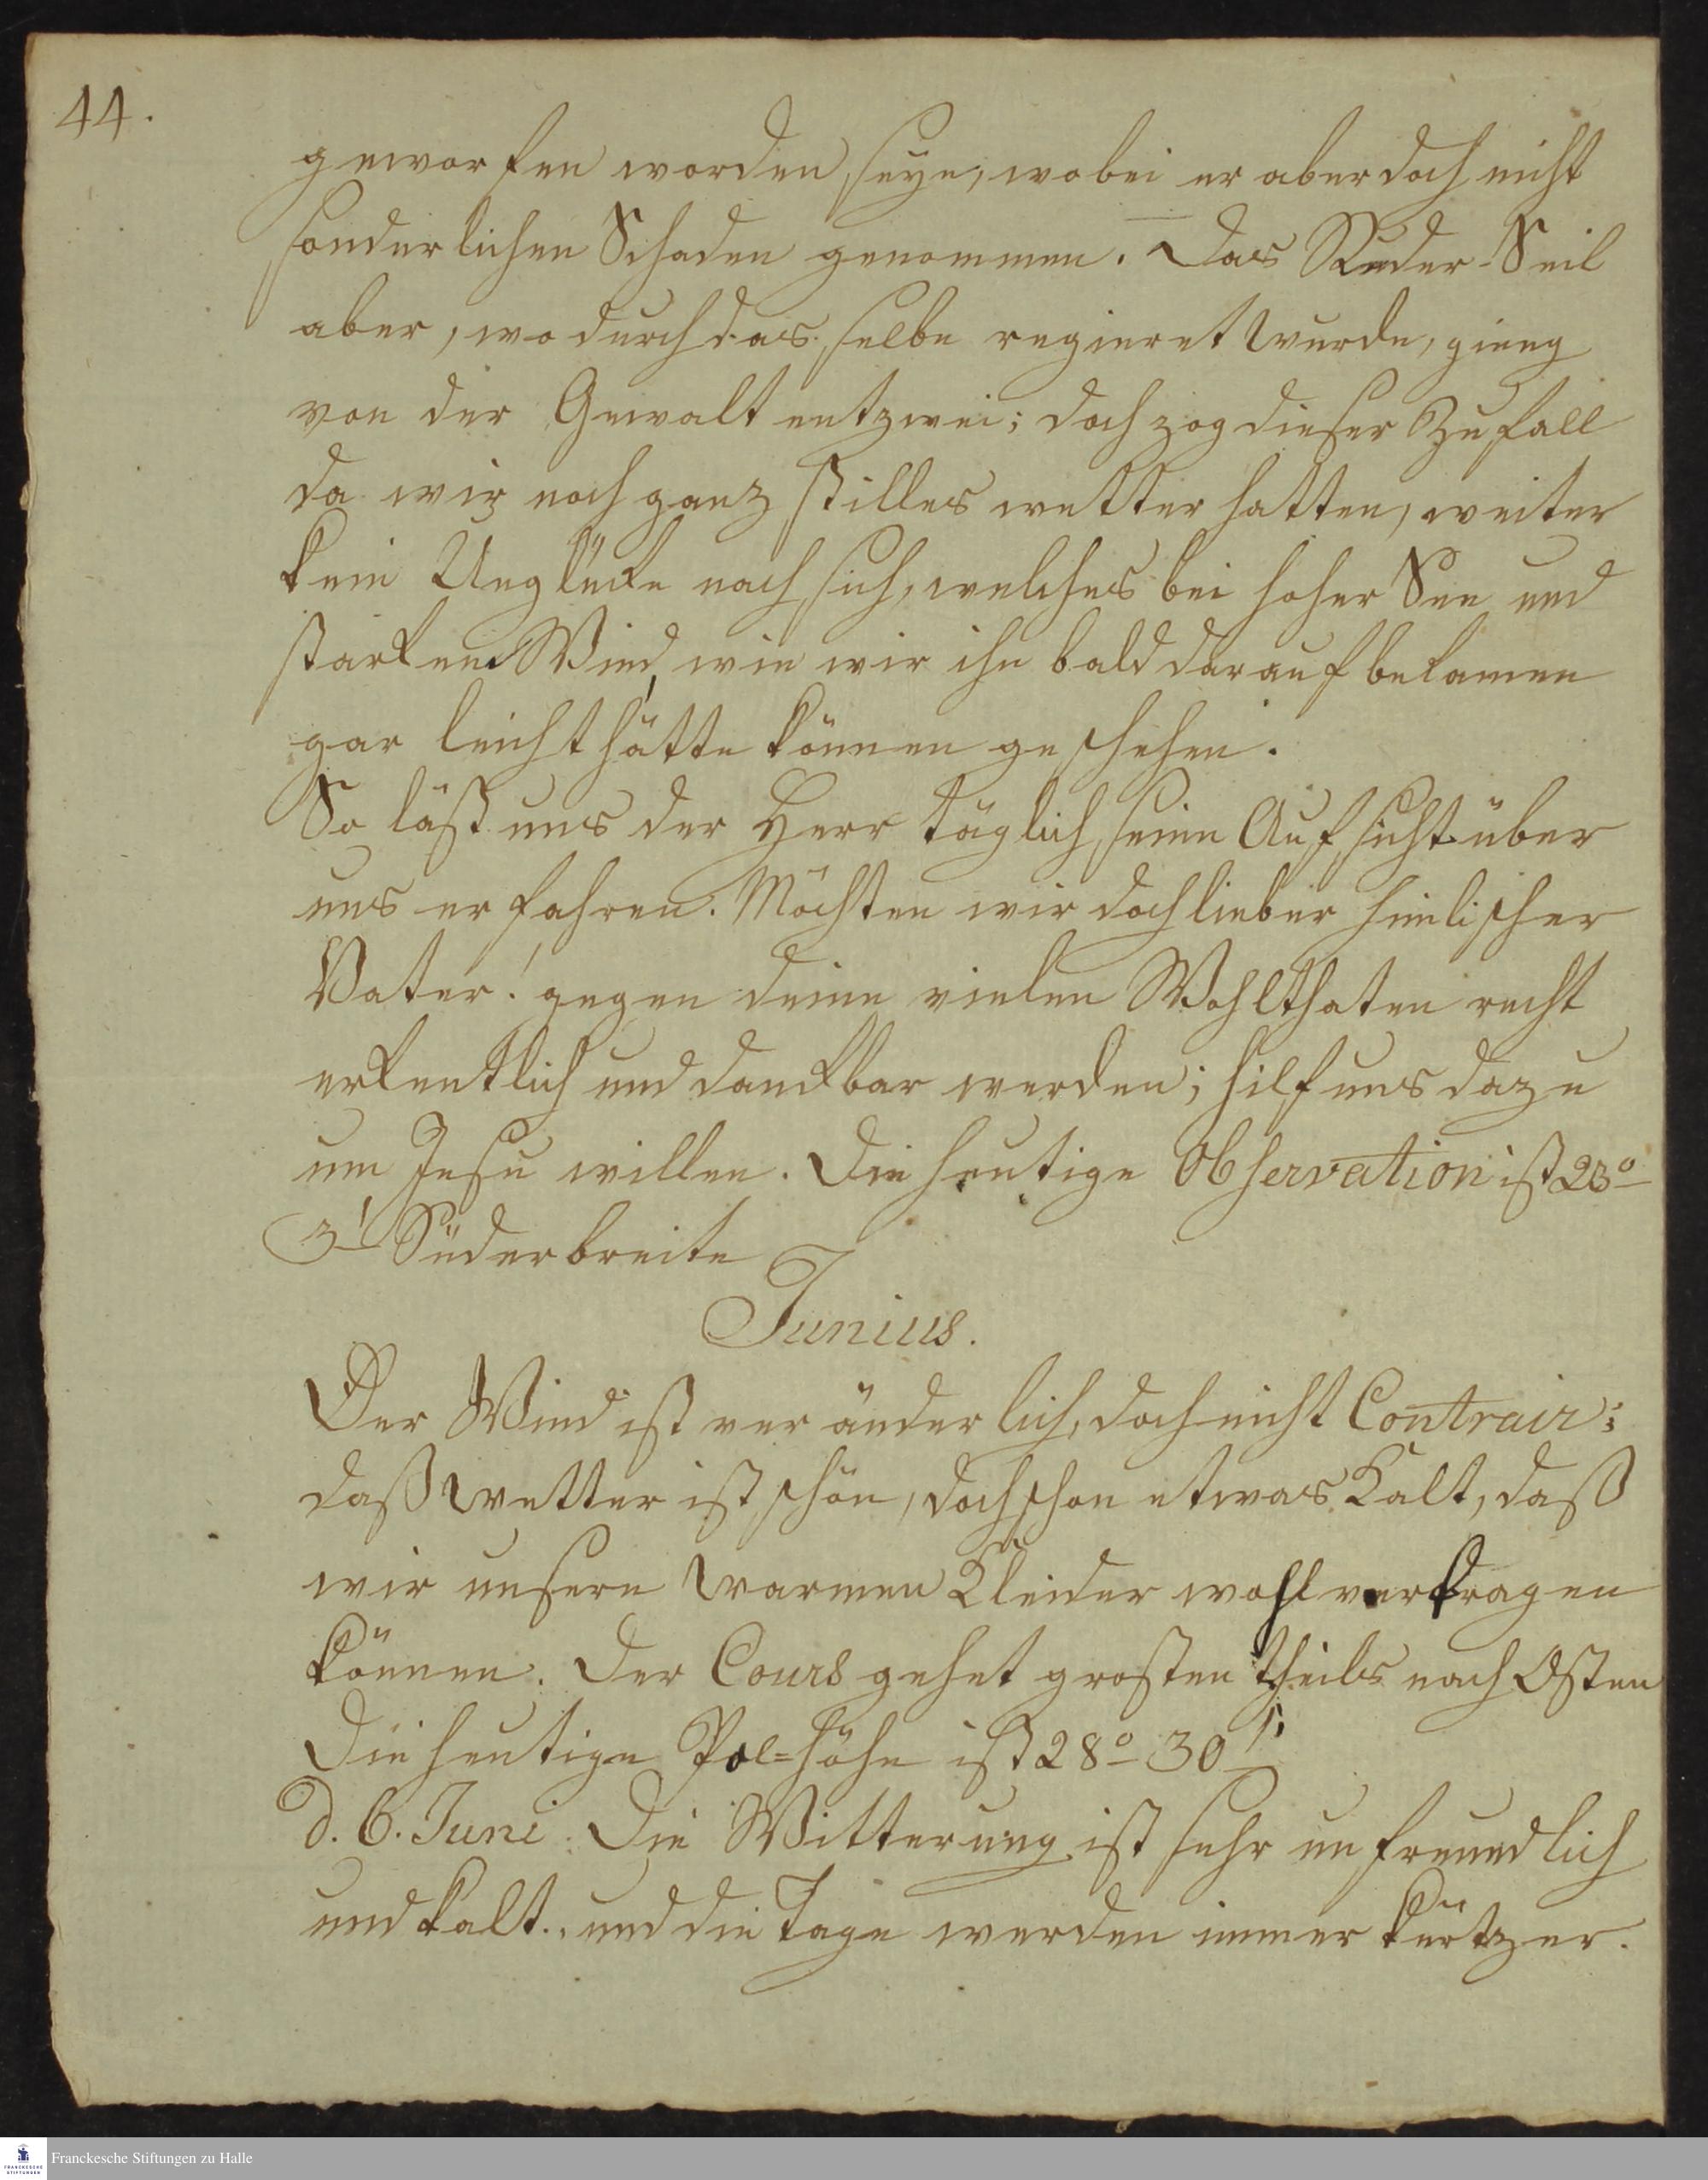 44.
geworfen worden seye, wobei er aber doch nicht
sonderlichen Schaden genommen. Das Ruder-Seil
aber, wo durch das selbe regieret wurde, gieng
von der Gewalt entzwei; doch zog dieser Zufall
da wir noch ganz stilles wetter hatten, weiter
kein Unglücke nach sich, welches bei hoher See und
starken Wind, wie wir ihn bald darauf bekamen
gar leicht hätte können geschehen.
So läßt uns der Herr täglich seine Aufsicht über
uns erfahren. Möchten wir doch lieber himlischer
Vater! gegen deine vielen Wohlthaten recht
erkentlich und danckbar werden; hilf uns dazu
um Jesu willen. Die heutige Observation ist 23°
3' Süderbreite
Junius.
Der Wind ist veränderlich, doch nicht Contrair;
daß wetter ist schön, doch schon etwas Kalt, daß
wir unsere warmen Kleider wohl vertragen
können. Der Cours gehet grosten theils nach Osten
Die heutige Pol=höhe ist 28° 30'.
d. 6. Juni. Die Witterung ist sehr unfreundlich
und kalt., und die Tage werden immer kürtzer.
Franckesche Stiftungen zu Halle
FRANCKESCHE
STIFTUNGEN